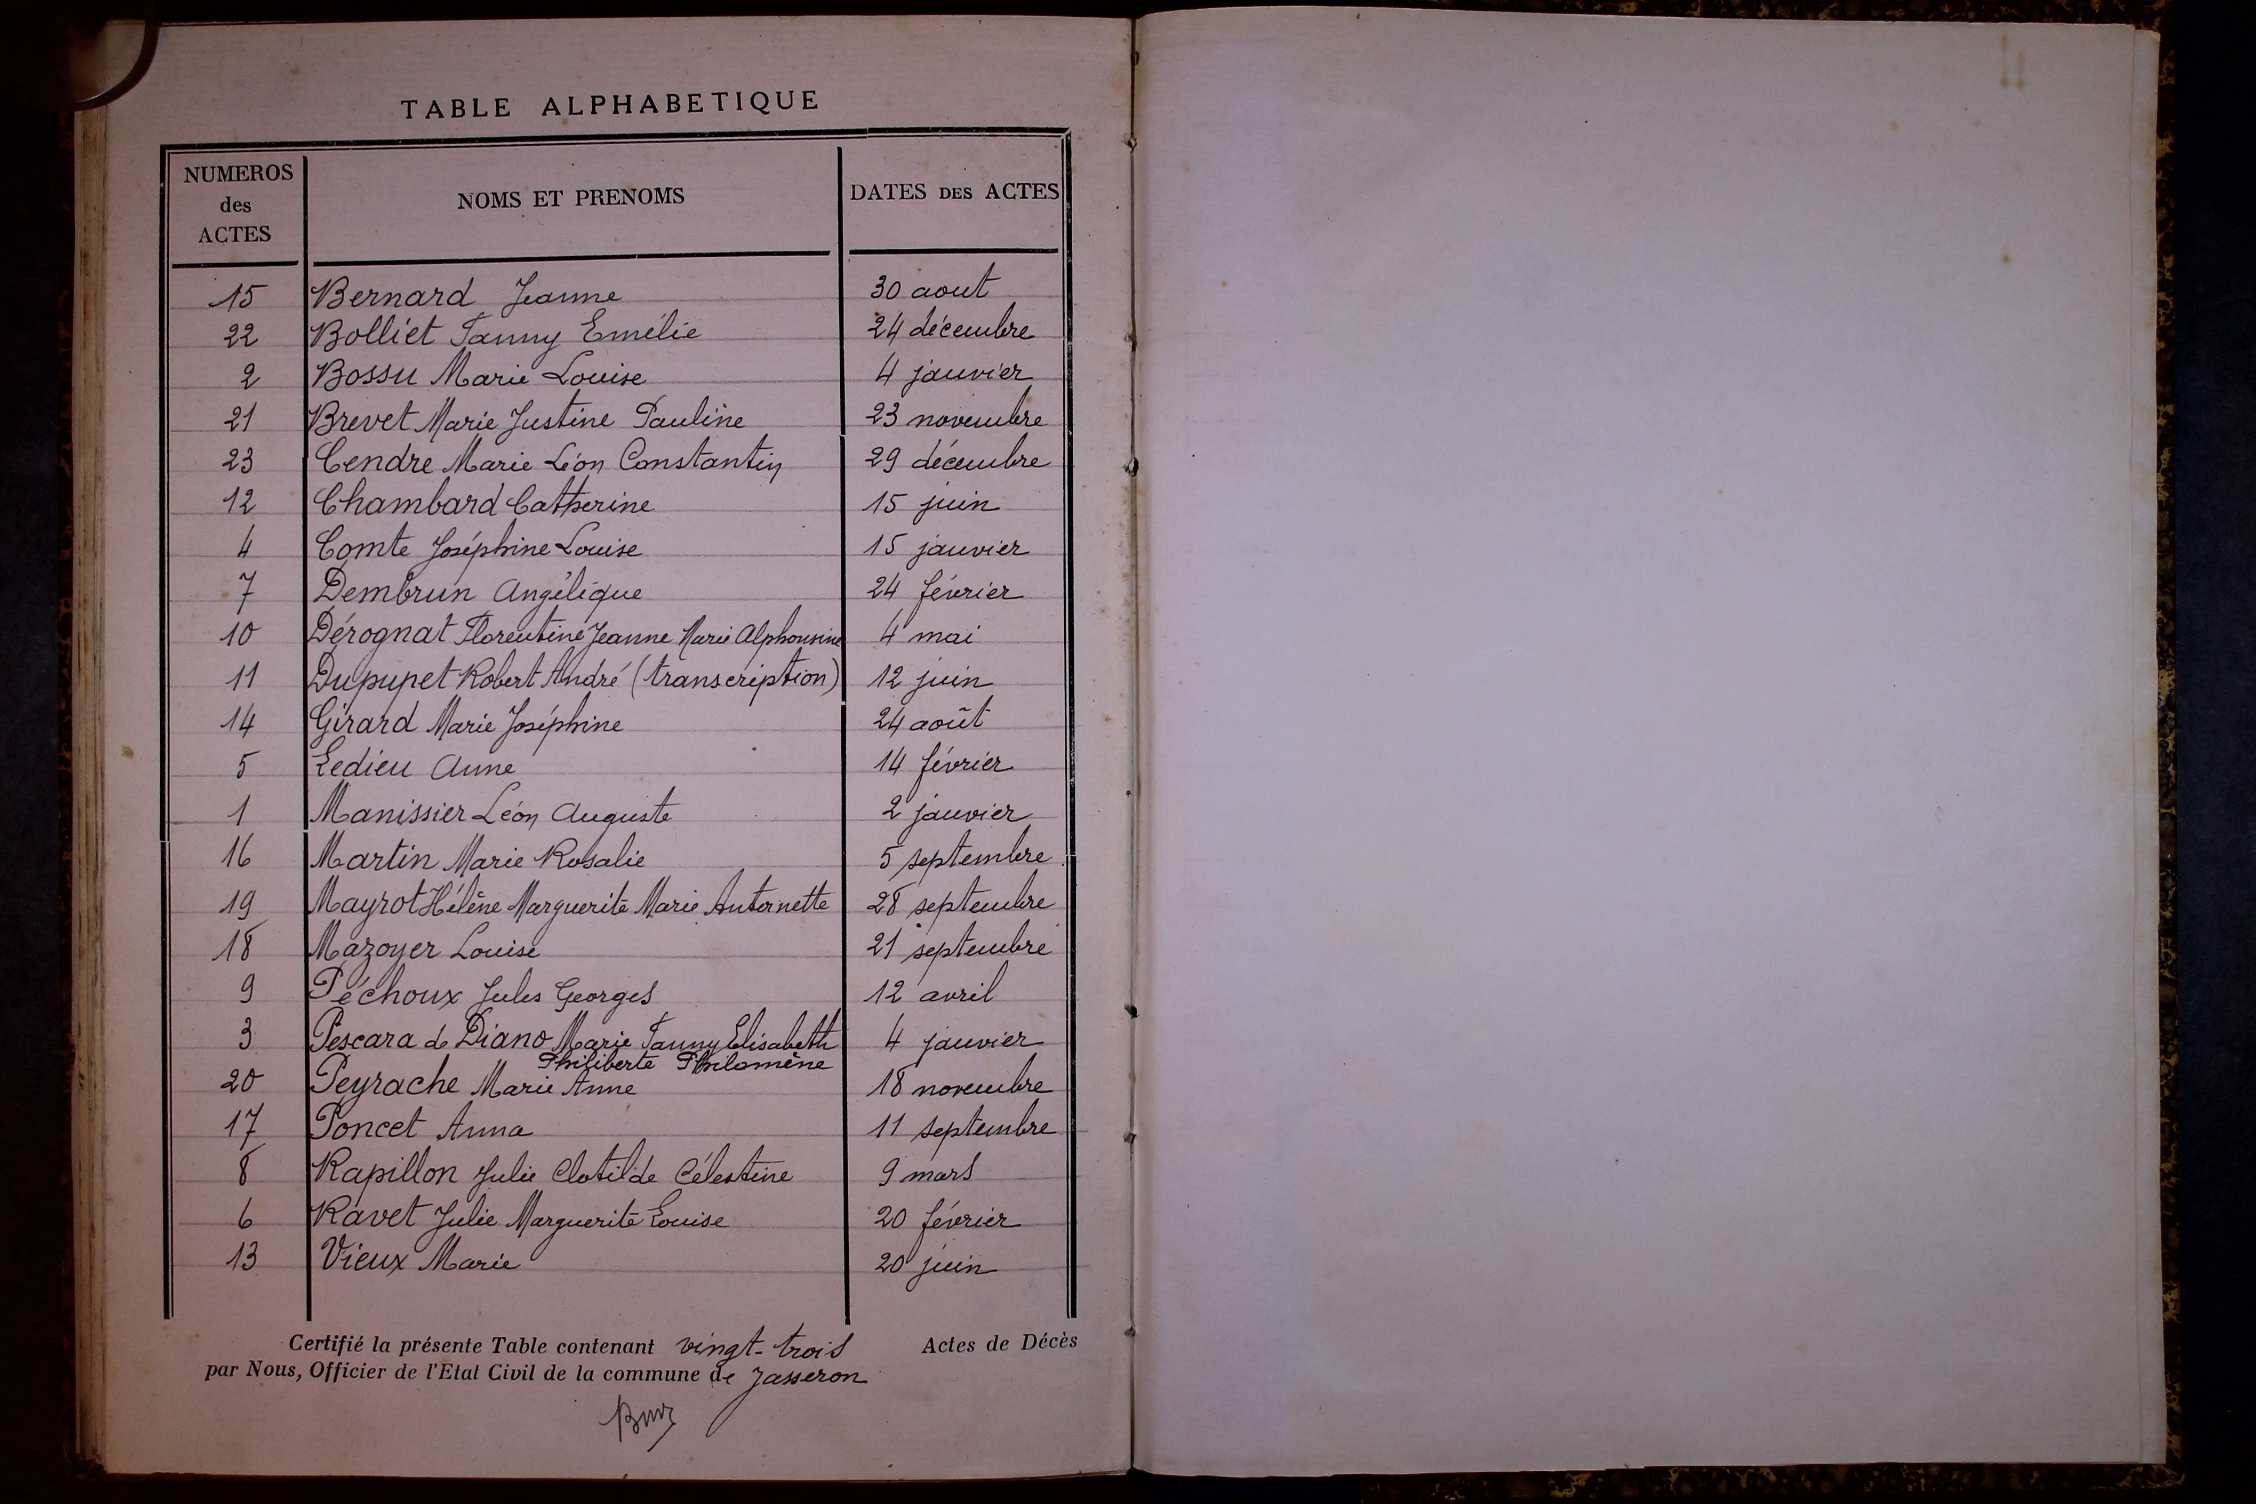 TABLE ALPHABETIQUE
NUMEROS des ACTES NOMS ET PRENOMS DATES DES ACTES
15 Bernard Jeanne 30 aout
22 Bolliet Fanny Emélie 24 décembre
2 Bossu Marie Louise 4 janvier
21 Brevet Marie Justine Pauline 23 novembre
23 Cendre Marie Léon Constantin 29 décembre
12 Chambard Catherine 15 juin
4 Comte Joséphine Louise 15 janvier
7 Dembrun Angélique 24 février
10 Dérognat Florentine Jeanne Marie Alphonsine 4 mai
11 Dupupet Robert André (transcription) 12 juin
14 Girard Marie Joséphine 24 août
5 Ledieu Anne 14 février
1 Manissier Léon Auguste 2 janvier
16 Martin Marie Rosalie 5 septembre
19 Mayrot Hélène Marguerite Marie Antoinette 28 septembre
18 Mazoyer Louise 21 septembre
9 Péchoux Jules Georges 12 avril
3 Pescara de Diano Marie Fanny Elisabeth 4 janvier
Philiberte Philomène
20 Peyrache Marie Anne 18 novembre
17 Poncet Anna 11 septembre
8 Rapillon Julie Clotilde Célestine 9 mars
6 Ravet Julie Marguerite Louise 20 février
13 Vieux Marie 20 juin
Certifié la présente Table contenant vingt-trois Actes de Décès
par Nous, Officier de l'Etat Civil de la commune de Jasseron